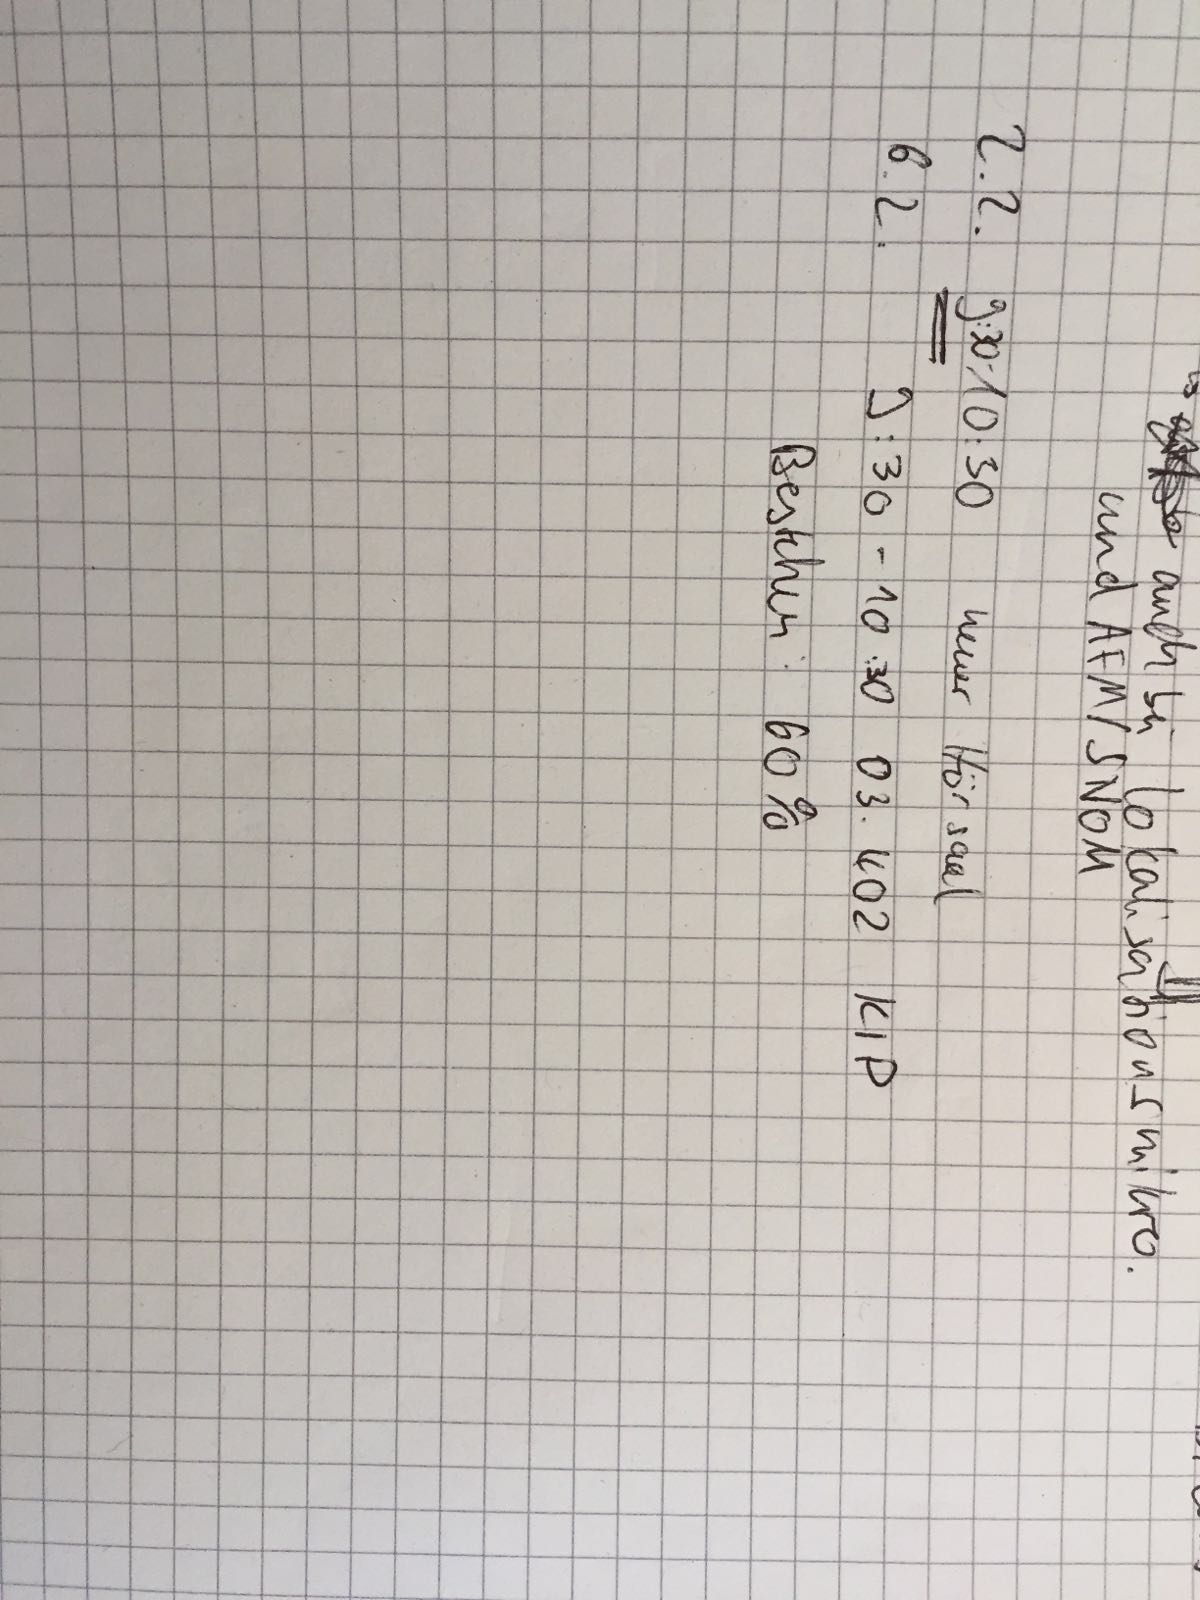 auch bei Lokalisationsmikro.
und AFM/SNOM
2.2. 9:30-10:30 neuer Hörsaal
6.2. 9:30-10:30 03.402 KIP
Bestehen: 60%